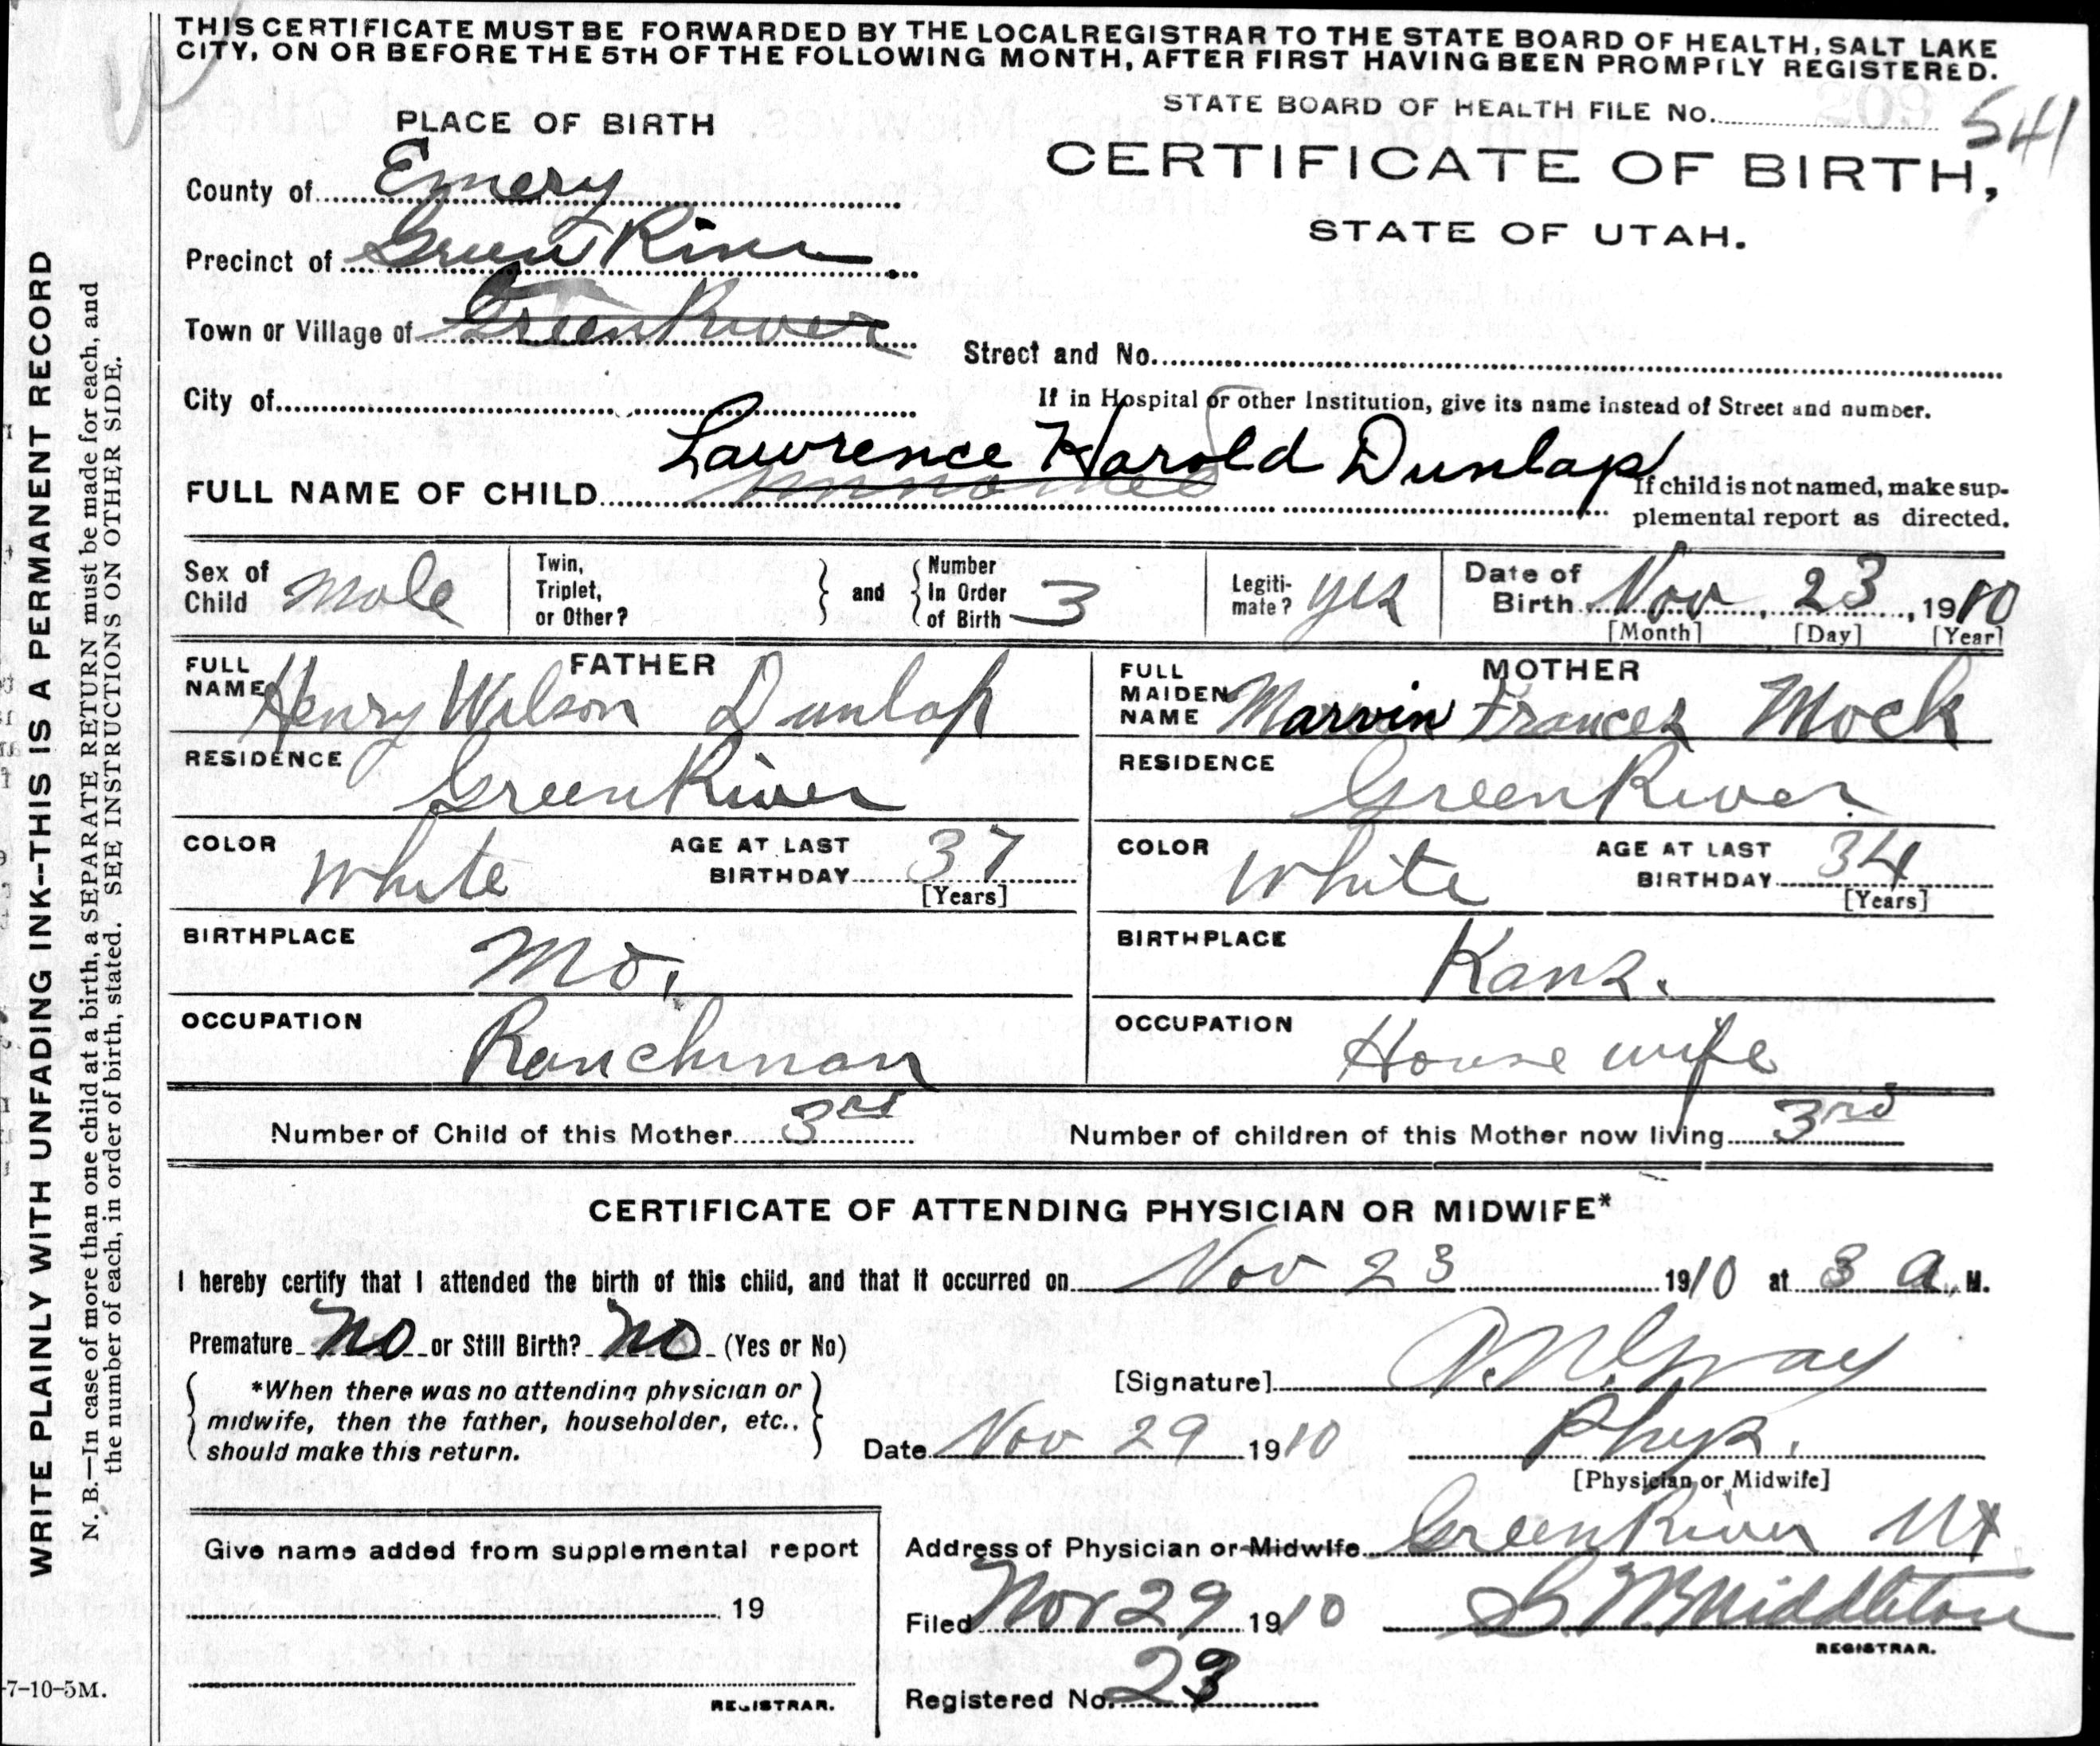 THIS CERTIFICATE MUST BE FORWARDED BY THE LOCAL REGISTRAR TO THE STATE BOARD OF HEALTH, SALT LAKE
CITY, ON OR BEFORE THE 5TH OF THE FOLLOWING MONTH, AFTER FIRST HAVING BEEN PROMPTLY REGISTERED.
STATE BOARD OF HEALTH FILE No. 541
PLACE OF BIRTH
CERTIFICATE OF BIRTH,
STATE OF UTAH.
County of Emery
Precinct of Green River
Town or Village of Green River
Street and No.
City of
If in Hospital or other Institution, give its name instead of Street and number.
Lawrence Harold Dunlap
FULL NAME OF CHILD unnamed
If child is not named, make sup-
plemental report as directed.
Sex of Child Male
Twin, Triplet, or Other?
and
Number In Order of Birth 3
Legiti-mate? yes
Date of Birth Nov, 23, 1910
[Month] [Day] [Year]
FATHER
FULL NAME Henry Wilson Dunlap
RESIDENCE Green River
COLOR White
AGE AT LAST BIRTHDAY 37
[Years]
BIRTHPLACE Mo.
OCCUPATION Ranchman
MOTHER
FULL MAIDEN NAME Marvin Frances Mock
RESIDENCE Green River
COLOR White
AGE AT LAST BIRTHDAY 34
[Years]
BIRTHPLACE Kans.
OCCUPATION House wife
Number of Child of this Mother 3rd
Number of children of this Mother now living 3rd
CERTIFICATE OF ATTENDING PHYSICIAN OR MIDWIFE*
I hereby certify that I attended the birth of this child, and that it occurred on Nov 23 1910 at 3 a. M.
Premature no or Still Birth? no (Yes or No)
*When there was no attending physician or
midwife, then the father, householder, etc.,
should make this return.
[Signature] Gray
Date Nov 29 1910
Phys.
[Physician or Midwife]
Address of Physician or Midwife Green River Ut
Give name added from supplemental report
19
REGISTRAR.
Filed Nov 29 1910
Middleton
REGISTRAR.
Registered No. 23
WRITE PLAINLY WITH UNFADING INK--THIS IS A PERMANENT RECORD
N. B.—In case of more than one child at a birth, a SEPARATE RETURN must be made for each, and
the number of each, in order of birth, stated. SEE INSTRUCTIONS ON OTHER SIDE.
-7-10-5M.